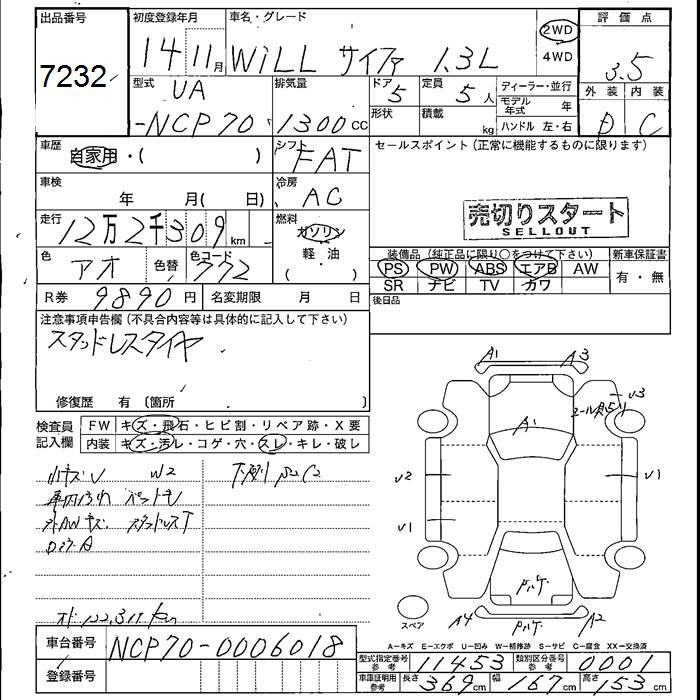 出品番号
7232
初度登録年月
14 11月
車名・グレード
WiLL サイファ 1.3L
2WD
4WD
評価点
3.5
外装 内装
D C
型式
UA
-NCP70
排気量
1300cc
ドア
5
定員
5人
形状
積載
kg
ディーラー・並行
モデル年式 年
ハンドル 左・右
車歴
自家用・( )
シフト
FAT
セールスポイント (正常に機能するものに限ります)
車検
年 月( 日)
冷房
AC
売切りスタート
SELLOUT
走行
12万2千309km
燃料
ガソリン
軽・油
( )
色
アオ
色替
色コード
772
装備品 (純正品に限り○をつけて下さい)
PS PW ABS エアB AW
SR ナビ TV カワ
新車保証書
有・無
R券 9,890円
名変期限 月 日
後日品
注意事項申告欄 (不具合内容等は具体的に記入して下さい)
スタッドレスタイヤ
修復歴 有 〔箇所 〕
検査員記入欄
FW キズ・飛石・ヒビ割・リペア跡・X要
内装 キズ・汚レ・コゲ・穴・スレ・キレ・破レ
小キズU W2
下廻り
A1 A3
A1
U3
U2
U1
U1
A4 A2
スペア
車台番号
NCP70-0006018
登録番号
A=キズ E=エクボ U=凹み W=補修跡 S=サビ C=腐食 XX=交換済
型式指定番号 参考 11453
類別区分番号 参考 0001
車庫証明用 参考 長さ 369cm 幅 167cm 高さ 153cm